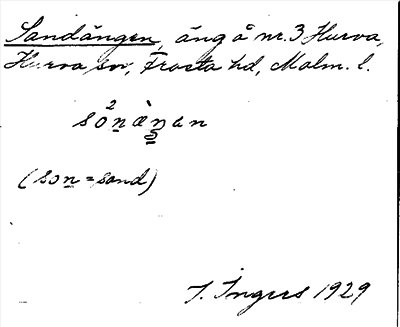 Sandängen, äng å nr. 3 Hurva,
Hurva sn, Frosta hd, Malm. l.
so²næ̀nan
(son = sand)
I. Ingers 1929